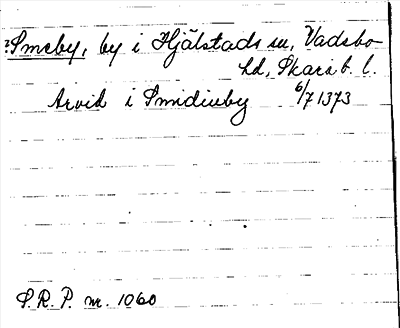 ?Smeby, by i Hjälstads sn, Vadsbo
hd, Skarab. l.
Arvid i Smidiuby 6/7 1373
S.R.P. nr. 1060